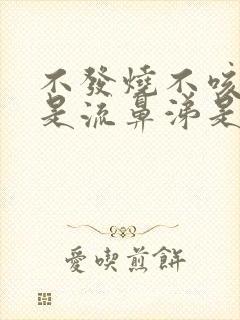 不發燒不咳
是流鼻涕是
愛喫煎餅